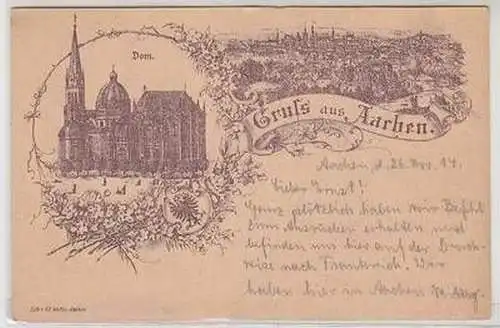 Dom.
Gruss aus Aachen.
Aachen, d. 26. Nov. 14.
Lieber Ernst!
Ganz plötzlich haben wir Befehl
zum Ausrücken erhalten und
befinden uns hier auf der Durch-
reise nach Frankreich. Wir
haben hier in Aachen